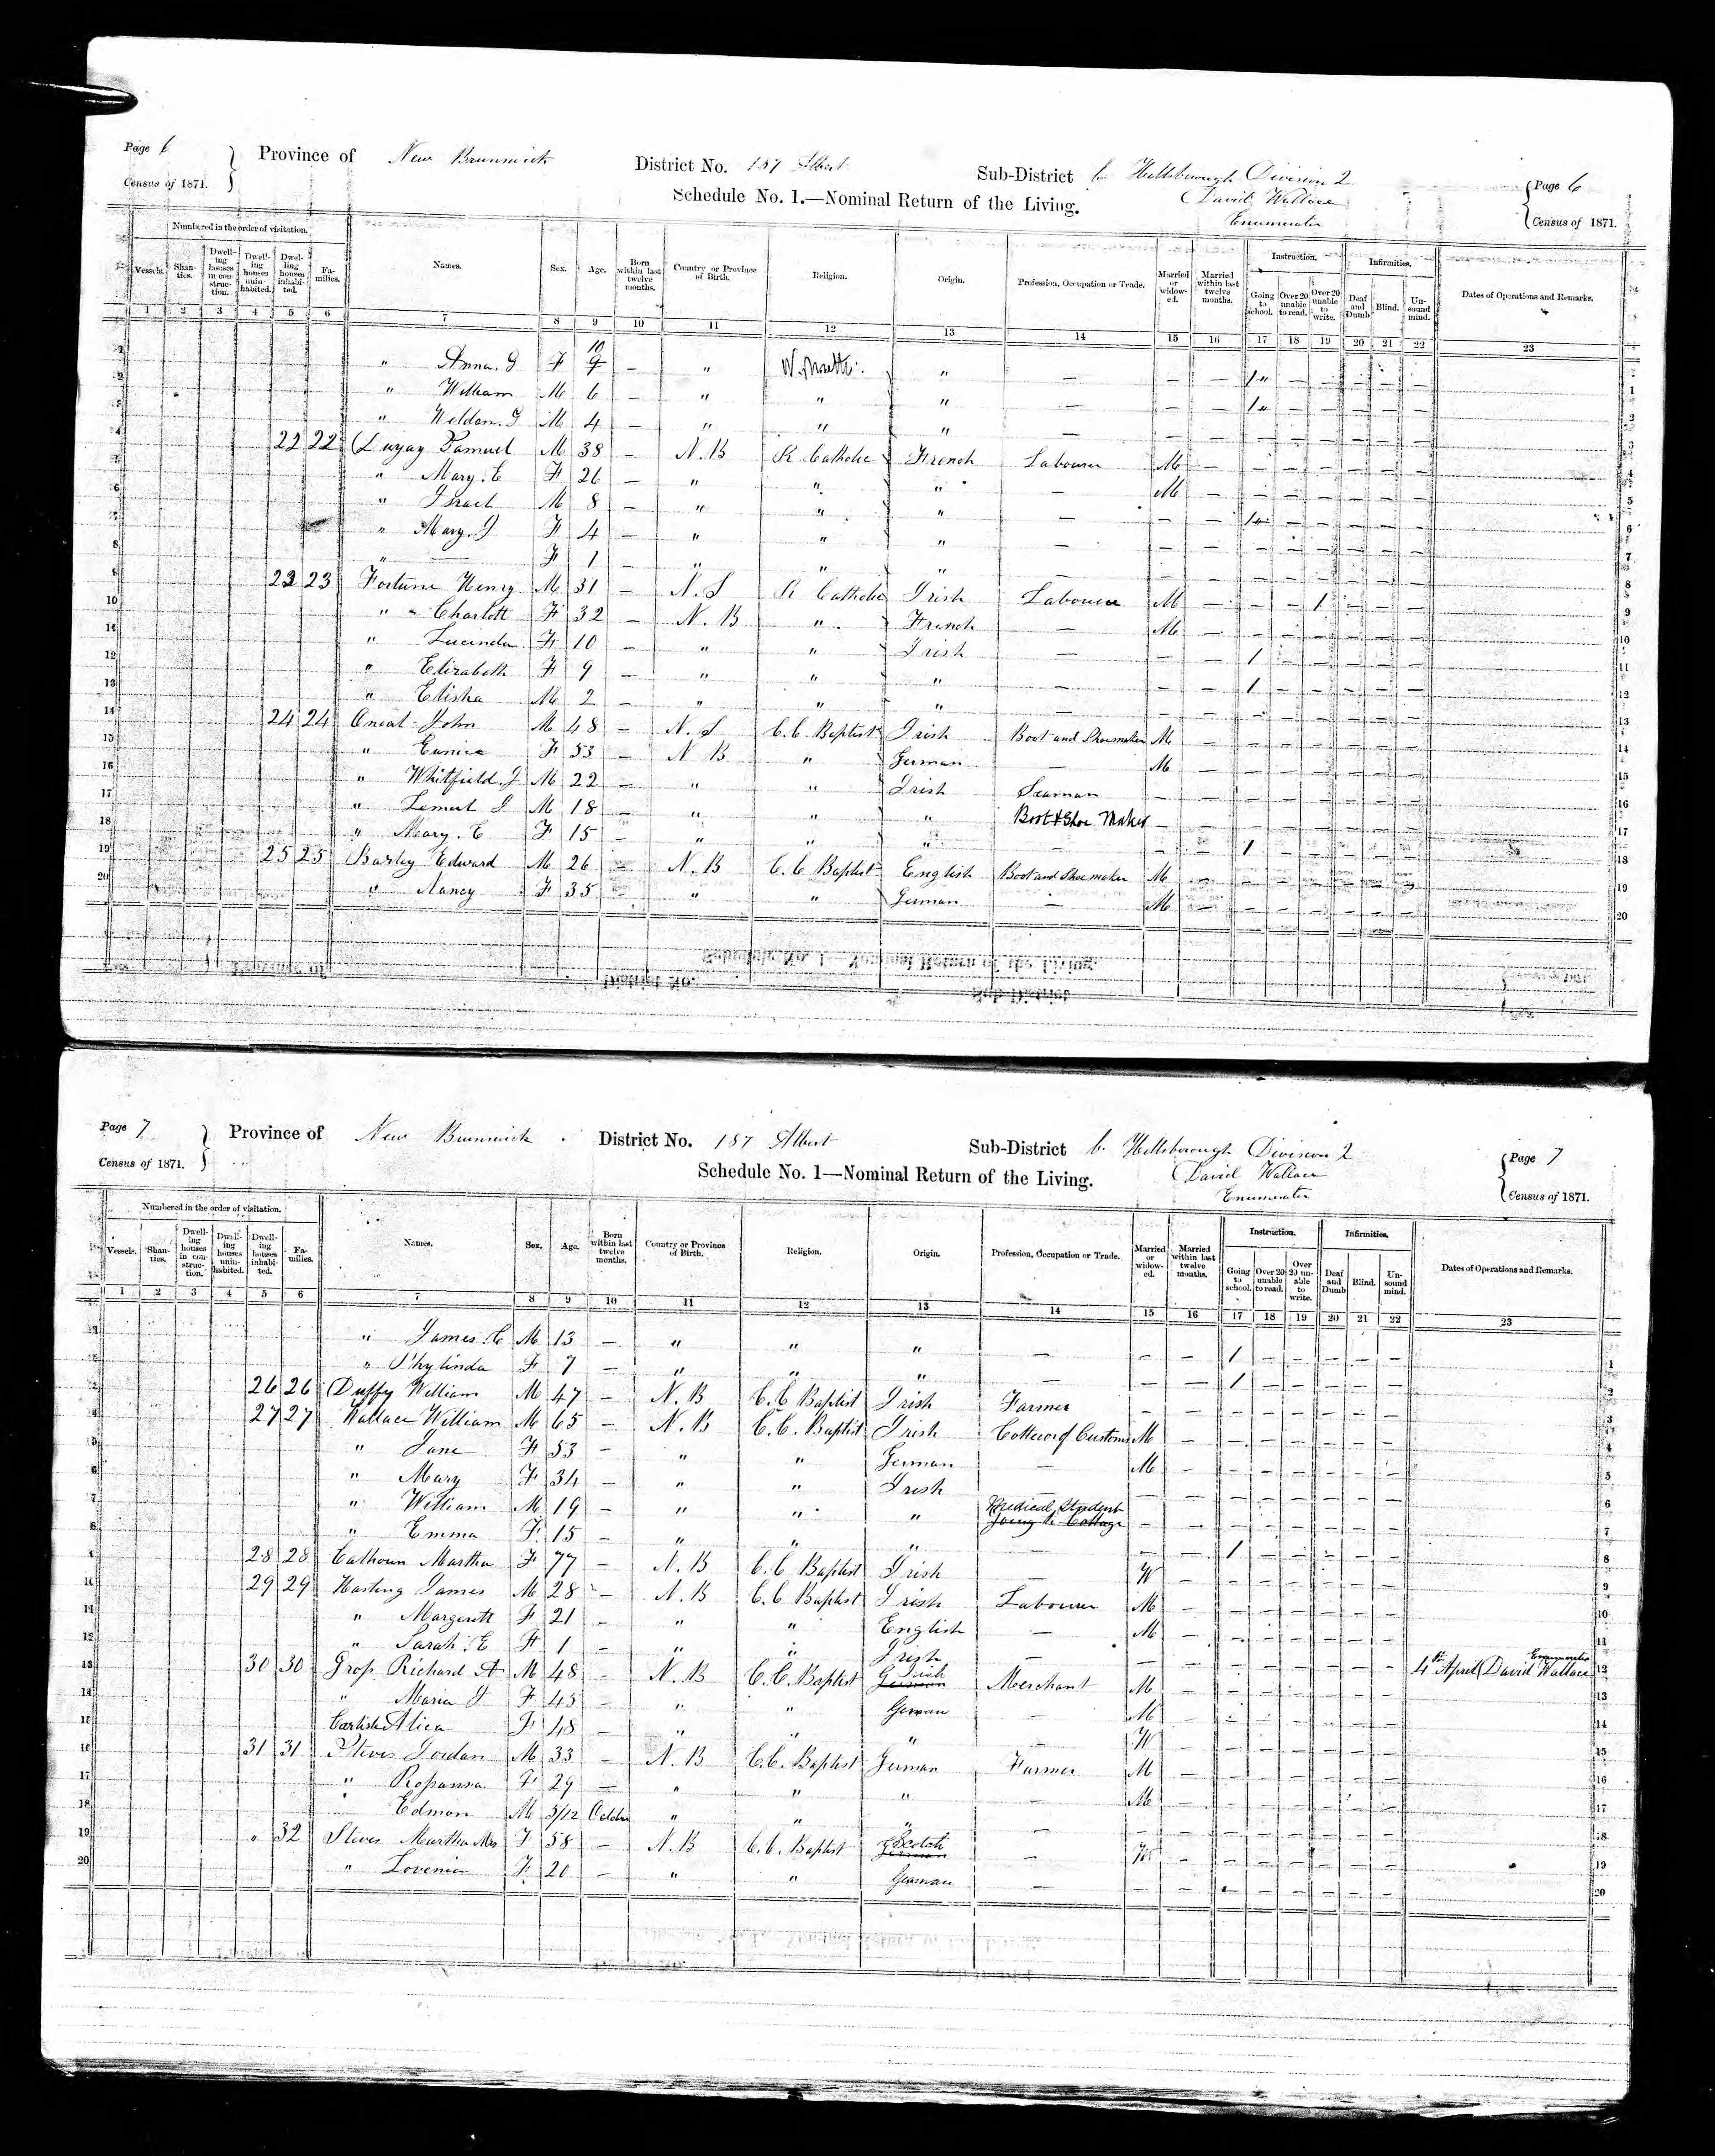 Page 6
Census of 1871.
Province of New Brunswick
District No. 187 Albert
Sub-District b Hillsborough Division 2
David Wallace
Enumerator
Page 6
Census of 1871.
Schedule No. 1.—Nominal Return of the Living.
Numbered in the order of visitation.
Vessels. Shanties. Dwelling houses in construction. Dwelling houses uninhabited. Dwelling houses inhabited. Families. Names. Sex. Age. Born within last twelve months. Country or Province of Birth. Religion. Origin. Profession, Occupation or Trade. Married or widowed. Married within last twelve months. Instruction. Going to school. Over 20 unable to read. Over 20 unable to write. Infirmities. Deaf and Dumb. Blind. Unsound mind. Dates of Operations and Remarks.
1 2 3 4 5 6 7 8 9 10 11 12 13 14 15 16 17 18 19 20 21 22 23
1 " Anna. J F 10 — " " — — — 1 — — — — — 1
2 " William M 6 — " " " — — — 1 — — — — — 2
3 " Weldon. J M 4 — " " " — — — — — — — — — 3
4 22 22 Samuel M 38 — N. B R Catholic French Labourer M — — — — — — — 4
5 " Mary. E F 26 — " " " — M — — — — — — — 5
6 " Israel M 8 — " " " — — — 1 — — — — — 6
7 " Mary. J F 4 — " " " — — — — — — — — — 7
8 " — F 1 — " " " — — — — — — — — — 8
9 23 23 Fortune Henry M 31 — N. S R Catholic Irish Labourer M — — — 1 — — — 9
10 " Charlott F 32 — N. B " French — M — — — — — — — 10
11 " Lucinda F 10 — " " Irish — — — 1 — — — — — 11
12 " Elizabeth F 9 — " " " — — — 1 — — — — — 12
13 " Elisha M 2 — " " " — — — — — — — — — 13
14 24 24 Oneal John M 48 — N. S C. C. Baptist Irish Boot and Shoemaker M — — — — — — — 14
15 " Eunice F 53 — N B " German — M — — — — — — — 15
16 " Whitfield. J M 22 — " " Irish Seaman — — — — — — — — 16
17 " Lemuel J M 18 — " " " Boot & Shoe Maker — — — — — — — — 17
18 " Mary. E F 15 — " " " — — — 1 — — — — — 18
19 25 25 Edward M 26 — N. B C. C Baptist English Boot and Shoemaker M — — — — — — — 19
20 " Nancy F 35 — " " German — M — — — — — — — 20
Page 7
Census of 1871.
Province of New Brunswick
District No. 187 Albert
Sub-District b. Hillsborough Division 2
David Wallace
Enumerator
Page 7
Census of 1871.
Schedule No. 1—Nominal Return of the Living.
Numbered in the order of visitation.
Vessels. Shanties. Dwelling houses in construction. Dwelling houses uninhabited. Dwelling houses inhabited. Families. Names. Sex. Age. Born within last twelve months. Country or Province of Birth. Religion. Origin. Profession, Occupation or Trade. Married or widowed. Married within last twelve months. Instruction. Going to school. Over 20 unable to read. Over 20 unable to write. Infirmities. Deaf and Dumb Blind. Unsound mind. Dates of Operations and Remarks.
1 2 3 4 5 6 7 8 9 10 11 12 13 14 15 16 17 18 19 20 21 22 23
1 " James. C M 13 — " " " — — — 1 — — — — — 1
2 " Phylinda F 7 — " " " — — — 1 — — — — — 2
3 26 26 Duffy William M 47 — N. B C. C Baptist Irish Farmer — — — — — — — — 3
4 27 27 Wallace William M 65 — N. B C. C. Baptist Irish Collector of Customs M — — — — — — — 4
5 " Jane F 53 — " " German — M — — — — — — — 5
6 " Mary F 34 — " " Irish — — — — — — — — 6
7 " William M 19 — " " " Medical Student Going to Collage — — — — — — — — 7
8 " Emma F 15 — " " " — — — 1 — — — — — 8
9 28 28 Calhoun Martha F 77 — N. B C. C Baptist Irish — W — — — — — — — 9
10 29 29 Hasting James M 28 — N. B C. C Baptist Irish Labourer M — — — — — — — 10
11 " Margerett F 21 — " " English — M — — — — — — — 11
12 " Sarah. E F 1 — " " Irish — — — — — — — — 12
13 30 30 Gross Richard A M 48 — N. B C. C. Baptist German Merchant M — — — — — — — 4th April David Wallace Enumerator 13
14 " Maria J F 43 — " " German — M — — — — — — — 14
15 Carlisle Alica F 48 — " " " — W — — — — — — — 15
16 31 31 Steves Jordan M 33 — N. B C. C. Baptist German Farmer M — — — — — — — 16
17 " Rossanna F 29 — " " " — M — — — — — — — 17
18 " Edmon M 5/12 October " " " — — — — — — — — — 18
19 " 32 Steves Martha Mrs F 58 — N. B C. C. Baptist Scotch German — W — — — — — — — 19
20 " Lovenia F 20 — " " German — — — — — — — — — 20